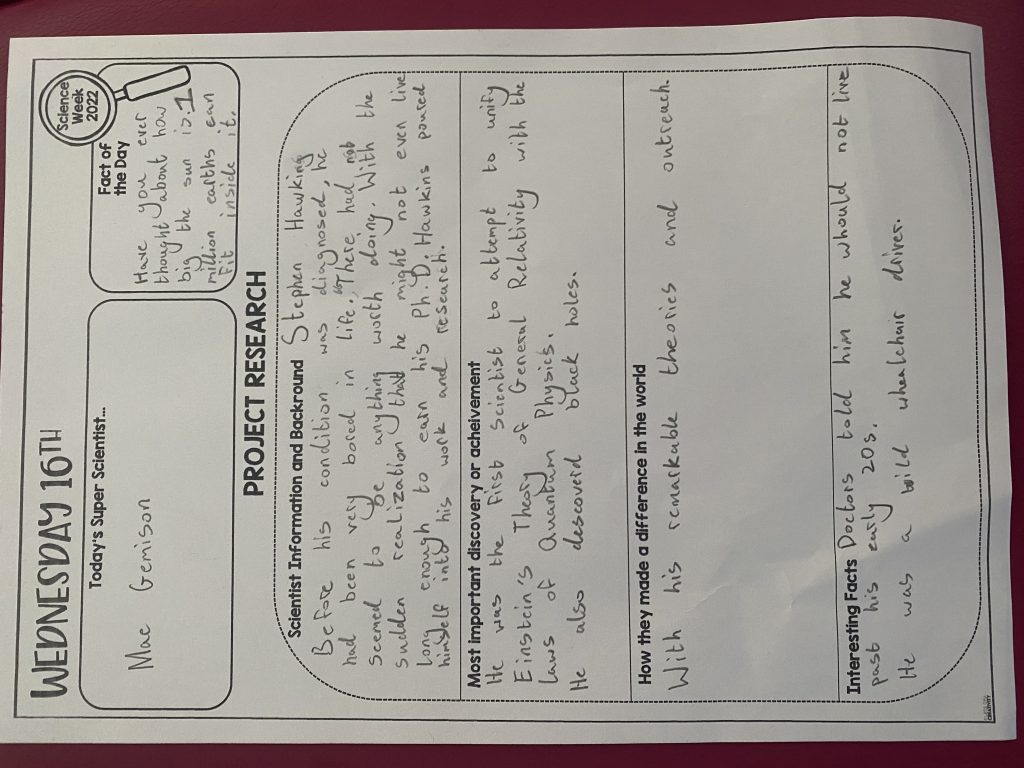 WEDNESDAY 16TH
Today's Super Scientist...
Mae Gemison
Science
Week
2022
Fact of
the Day
Have you ever
thought about how
big the sun is. 1
million earths can
fit inside it.
PROJECT RESEARCH
Scientist Information and Backround Stephen Hawking
Before his condition was diagnosed, he
had been very bored in life. There had not
seemed to be anything worth doing. With the
sudden realization that he might not even live
long enough to earn his Ph.D. Hawkins poured
himself into his work and research.
Most important discovery or acheivement
He was the first scientist to attempt to unify
Einstein's Theory of General Relativity with the
laws of Quantum Physics.
He also descoverd black holes.
How they made a difference in the world
With his remarkable theories and outreach.
Interesting Facts Doctors told him he whould not live
past his early 20s.
He was a wild whealchair driver.